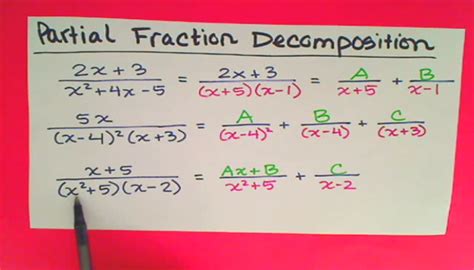 Partial Fraction Decomposition
(2x+3)/(x²+4x-5) = (2x+3)/((x+5)(x-1)) = A/(x+5) + B/(x-1)
5x/((x-4)²(x+3)) = A/(x-4)² + B/(x-4) + C/(x+3)
(x+5)/((x²+5)(x-2)) = (Ax+B)/(x²+5) + C/(x-2)